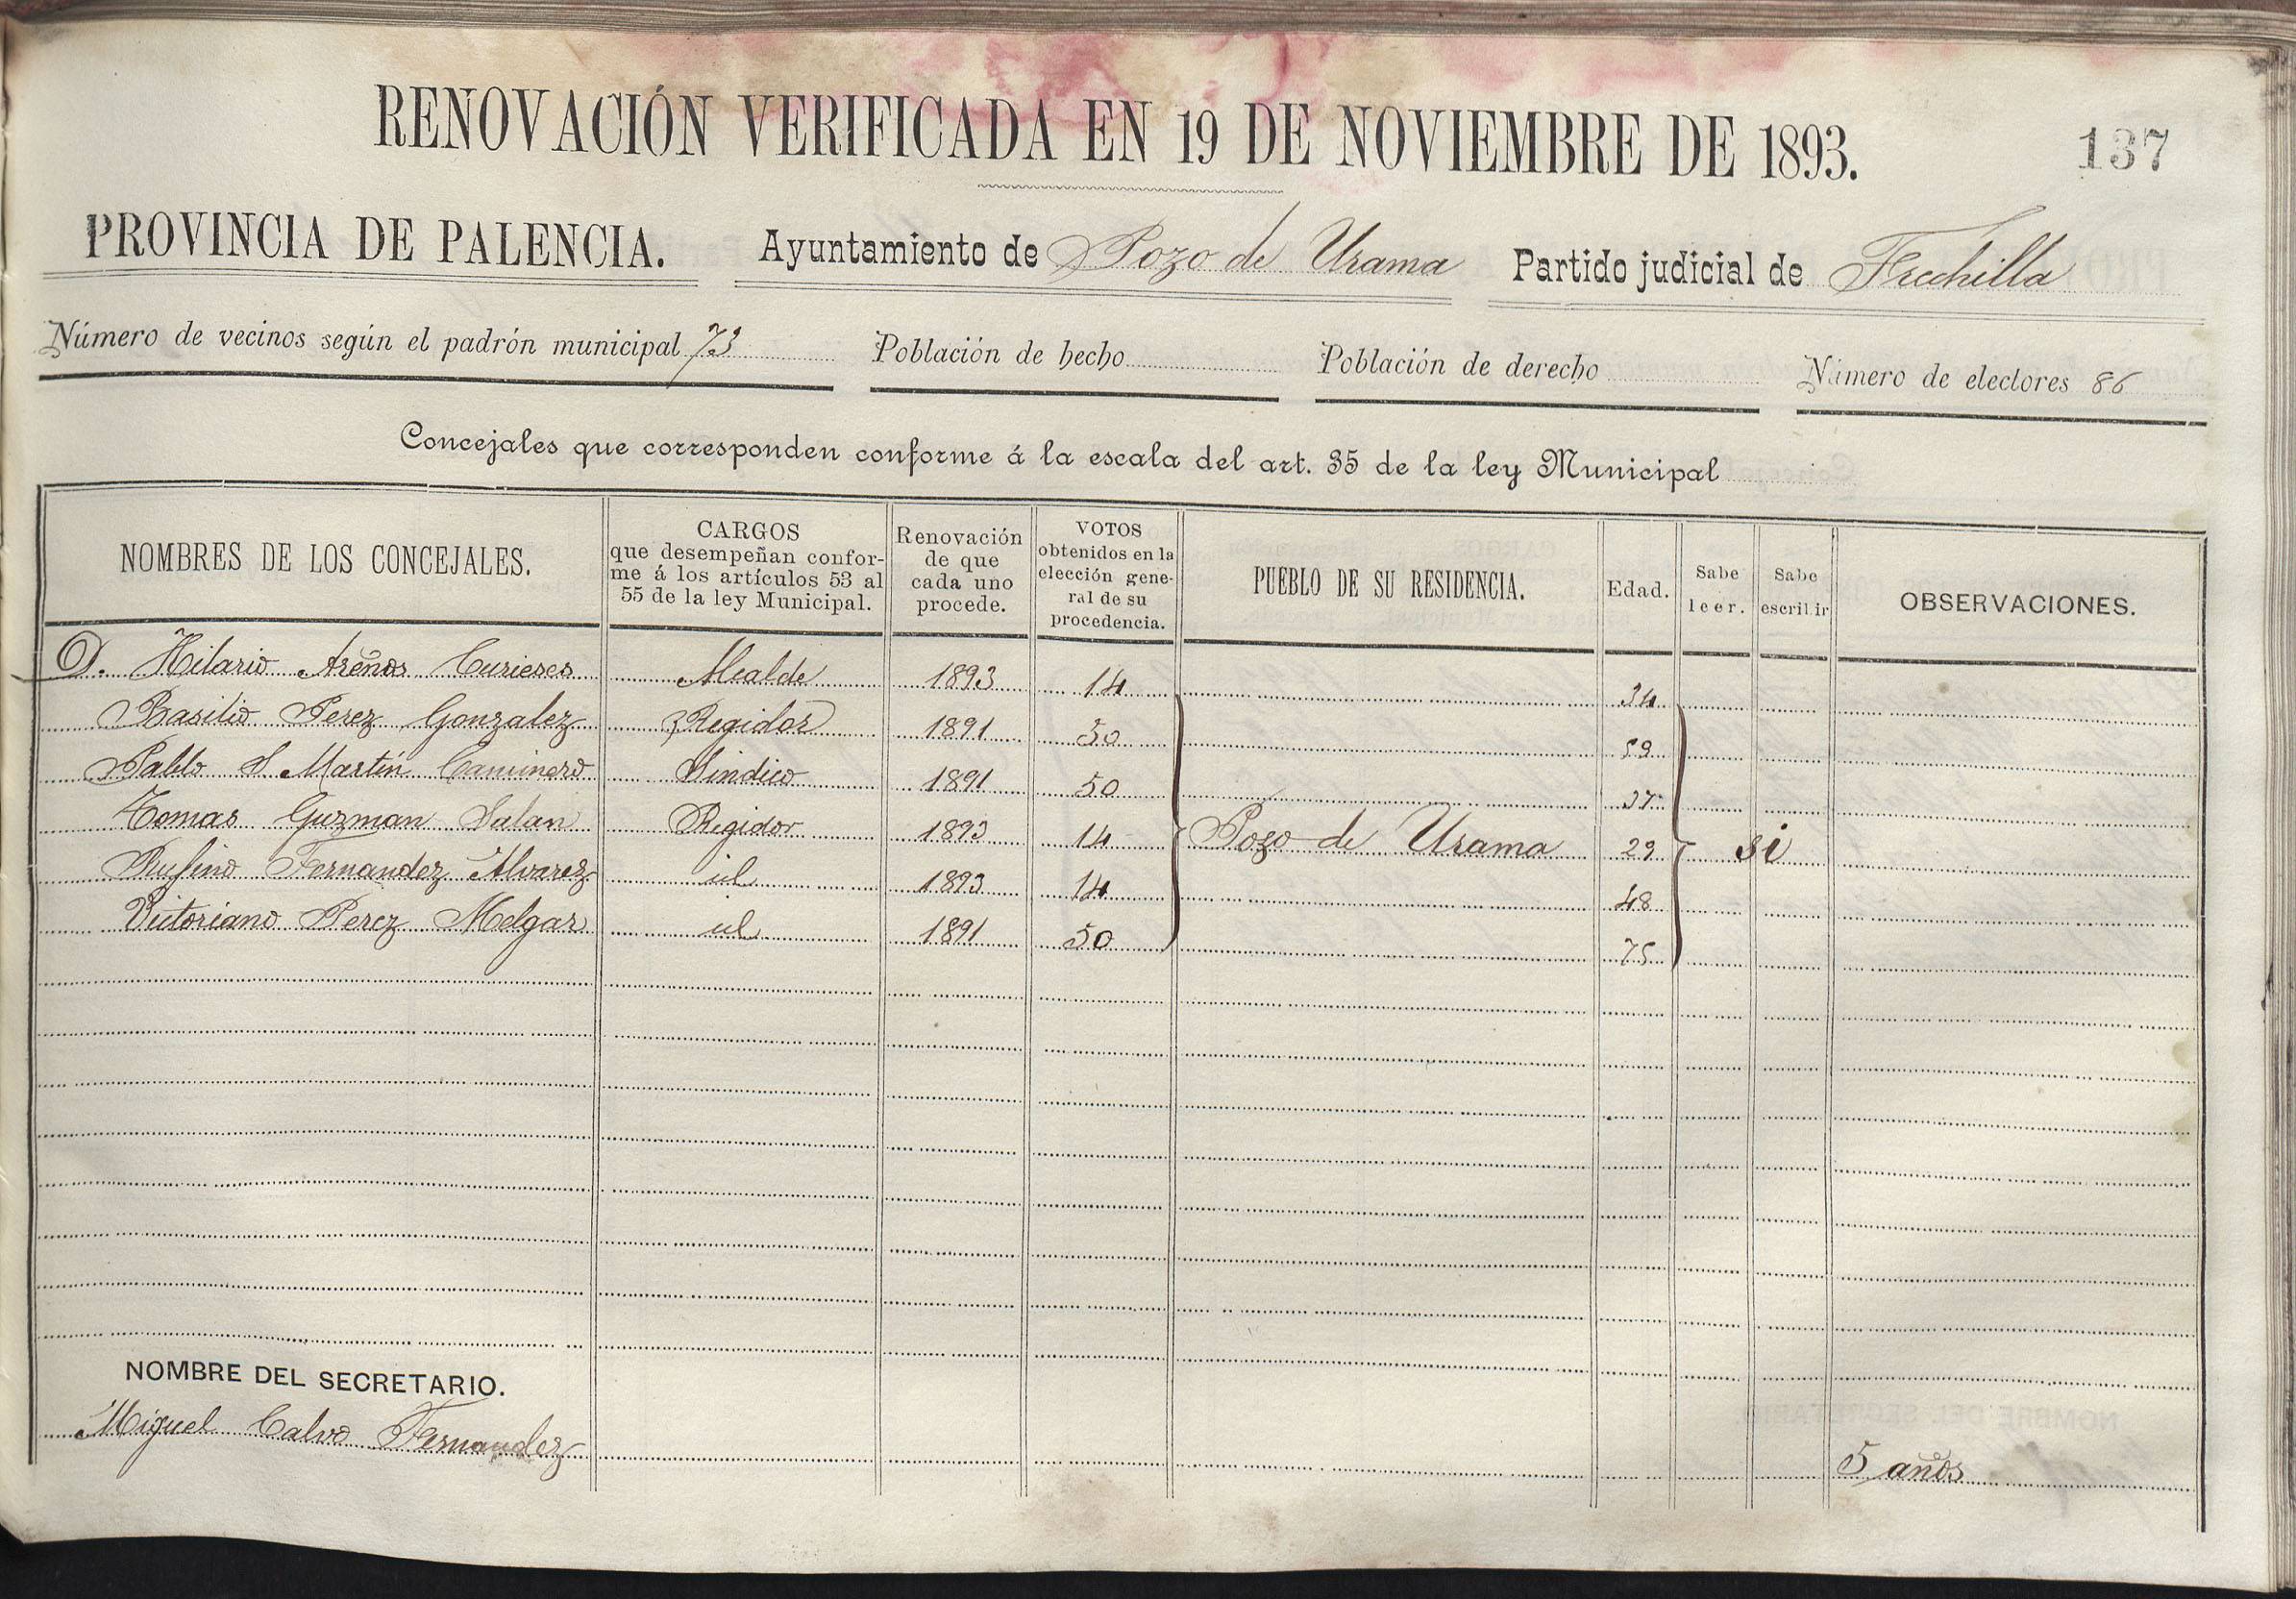 RENOVACIÓN VERIFICADA EN 19 DE NOVIEMBRE DE 1893.
137
PROVINCIA DE PALENCIA. Ayuntamiento de Pozo de Urama Partido judicial de Frechilla
Número de vecinos según el padrón municipal 73 Población de hecho Población de derecho Número de electores 86
Concejales que corresponden conforme á la escala del art. 35 de la ley Municipal
NOMBRES DE LOS CONCEJALES. CARGOS que desempeñan conforme á los artículos 53 al 55 de la ley Municipal. Renovación de que cada uno procede. VOTOS obtenidos en la elección general de su procedencia. PUEBLO DE SU RESIDENCIA. Edad. Sabe leer. Sabe escribir OBSERVACIONES.
D. Hilario Areños Curieses Alcalde 1893 14 34
Basilio Perez Gonzalez Regidor 1891 50 59
Pablo S Martín Caminero Sindico 1891 50 37
Tomas Guzman Salan Regidor 1893 14 Pozo de Urama 29 si
Rufino Fernandez Alvarez id 1893 14 48
Victoriano Perez Melgar id 1891 50 75
NOMBRE DEL SECRETARIO.
Miguel Calvo Fernandez 5 años